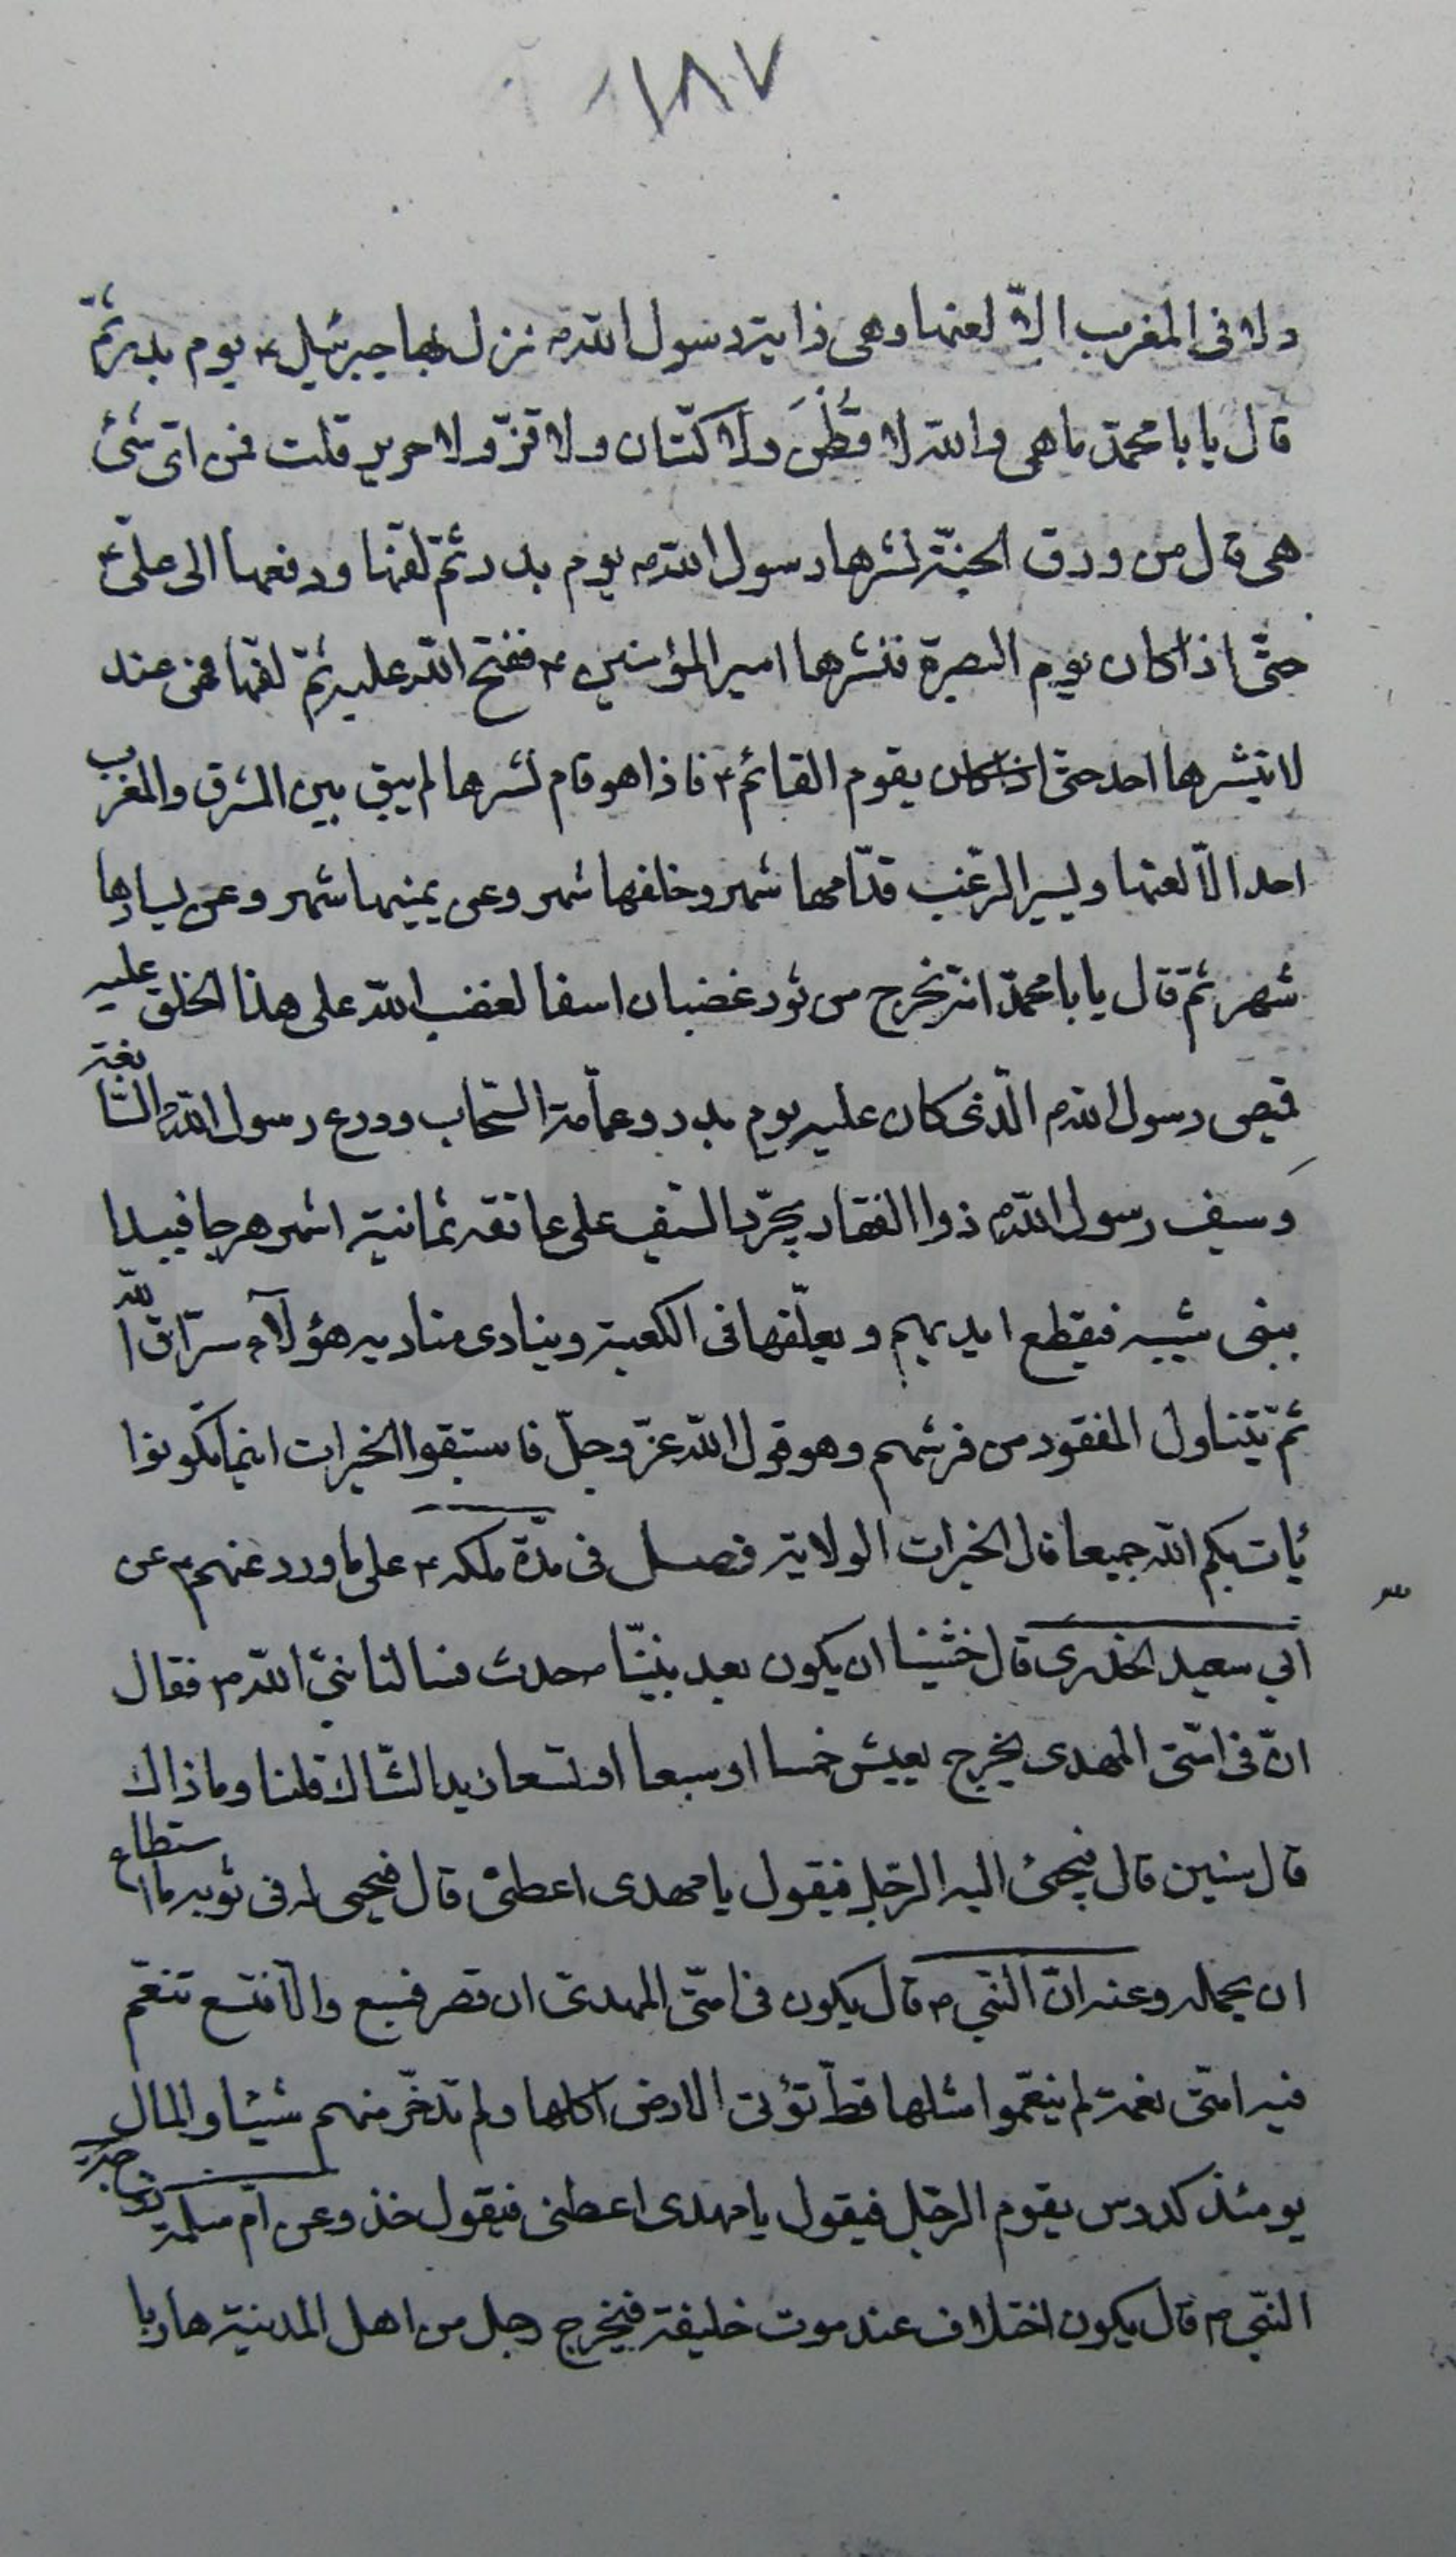 ١٨٧
ولا فى المغرب الّا لعنها وهى راية رسول اللّه ص نزل بها جبرئيل ع يوم بدر ثمّ
قال يا با محمّد ما هى واللّه لا قُطْنَ ولا كتّان ولا قزّ ولا حرير قلت فمن اىّ شئ
هى قال من ورق الجنّة نشرها رسول اللّه ص يوم بدر ثمّ لفّها ودفعها الى علىّ ع
حتّى اذا كان يوم البصرة فنشرها امير المؤمنين ع ففتح اللّه عليه ثمّ لفّها فهى عند
لا ينشرها احد حتى يقوم القائم ع فاذا هو قام نشرها لم يبق بين المشرق والمغرب
احد الّا لعنها ويسير الرّعب قدّامها شهر وخلفها شهر وعن يمينها شهر وعن يسارها
شهر ثمّ قال يا با محمّد انه يخرج موتور غضبان اسفا لغضب اللّه على هذا الخلق عليه
قميص رسول اللّه ص الّذى كان عليه يوم بدر وعمّامة السّحاب ودرع رسول اللّه ص السّابغة
وسيف رسول اللّه ص ذوا الفقار يجرّد السّيف على عاتقه ثمانية اشهر هرجا فيبدا
ببنى شيبه فيقطع ايديهم ويعلّقها فى الكعبة وينادى مناديه هؤلآء سرّاق اللّه
ثمّ يتناول المفقود من فرشهم وهو قول اللّه عزّ وجلّ فاستبقوا الخيرات اينما تكونوا
يأت بكم اللّه جميعا قال الخيرات الولاية فصل فى مدّة ملكه ع على ما ورد عنهم ع عن
ابي سعيد الخدرى قال خشينا ان يكون بعد نبيّنا حدث فسالنا نبىّ اللّه ص فقال
انّ فى امّتى المهدى يخرج يعيش خمسا او سبعا او تسعا زيد الشّاك قلنا وما ذاك
قال سنين قال فيجئ اليه الرّجل فيقول يا مهدى اعطنى قال فيحيى له فى ثوبه ما استطاع
ان يحمله وعنه انّ النّبي ص قال يكون فى امّتى المهدىّ ان قصر فسبع والّا فتسع تنعّم
فيه امّتى نعمة لم ينعّموا مثلها قطّ تؤتى الارض اكلها ولم تدّخر منهم شيئا والمال
يومئذ كدوس يقوم الرّجل فيقول يا مهدى اعطنى فيقول خذ وعن امّ سلمة زوجة
النّبي ص قال يكون اختلاف عند موت خليفة فيخرج رجل من اهل المدينة هاربا